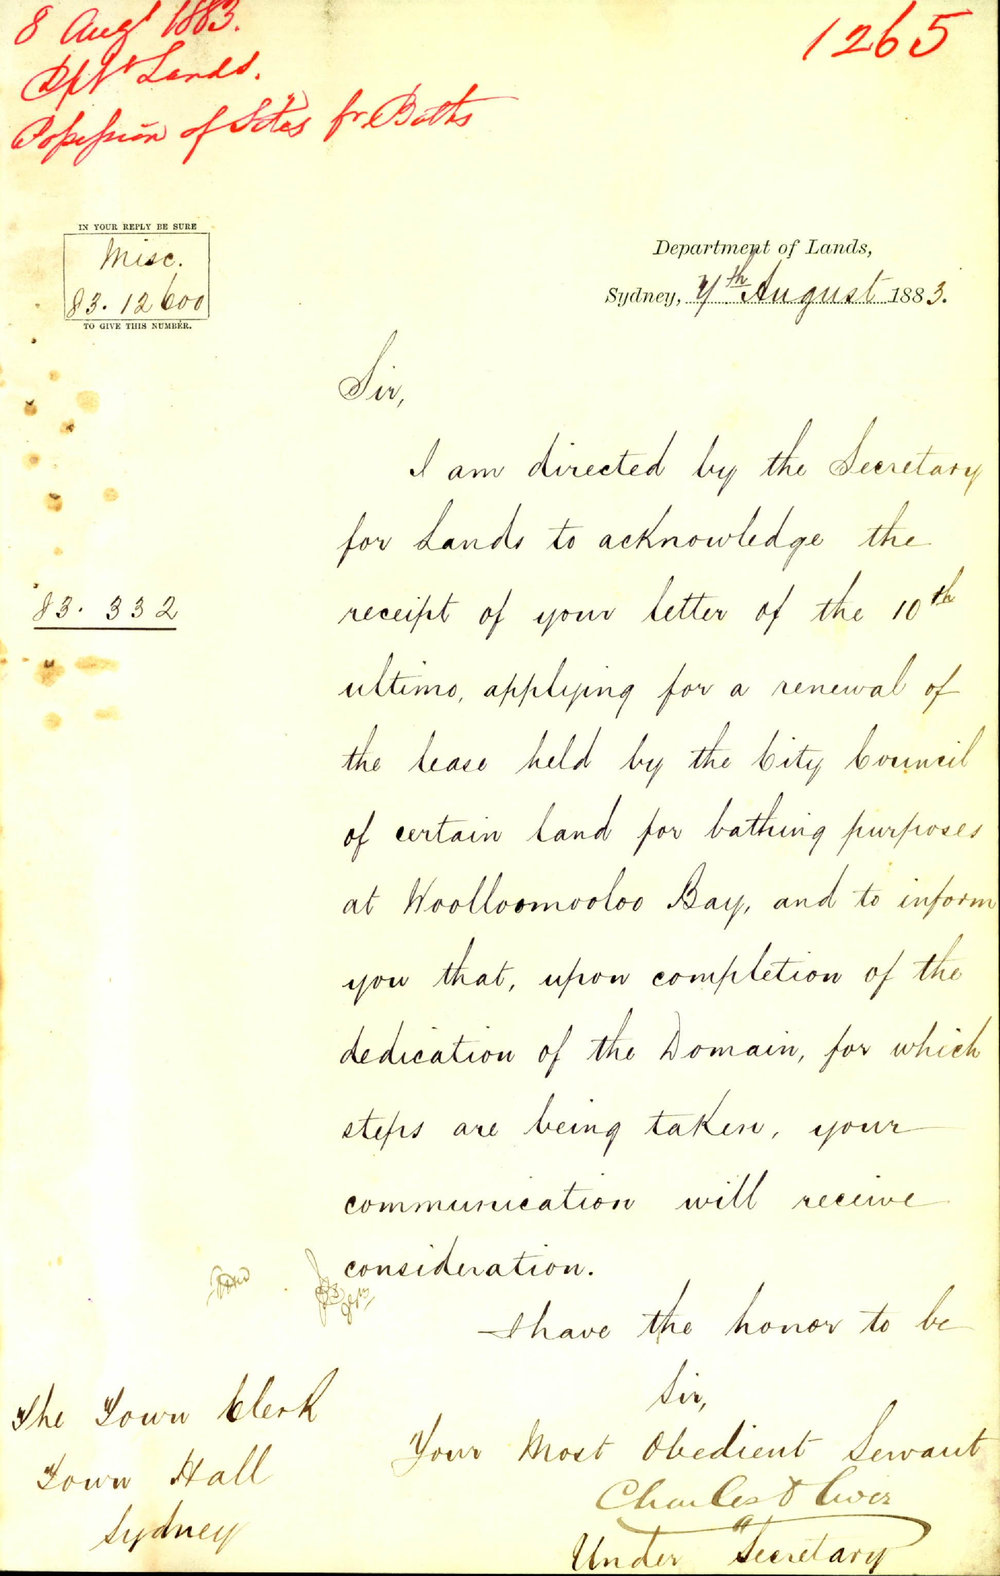 8 Augt 1883.
1265
Dpt Lands.
Possession of Sites fr Baths
IN YOUR REPLY BE SURE
Misc.
83. 12600
TO GIVE THIS NUMBER.
Department of Lands,
Sydney, 7th August 1883.
Sir,
I am directed by the Secretary
for Lands to acknowledge the
83. 332
receipt of your letter of the 10th
ultimo, applying for a renewal of
the lease held by the City Council
of certain land for bathing purposes
at Woolloomooloo Bay, and to inform
you that, upon completion of the
dedication of the Domain, for which
steps are being taken, your
communication will receive
consideration.
I have the honor to be
Sir,
Your Most Obedient Servant
Charles Oliver
Under Secretary
The Town Clerk
Town Hall
Sydney